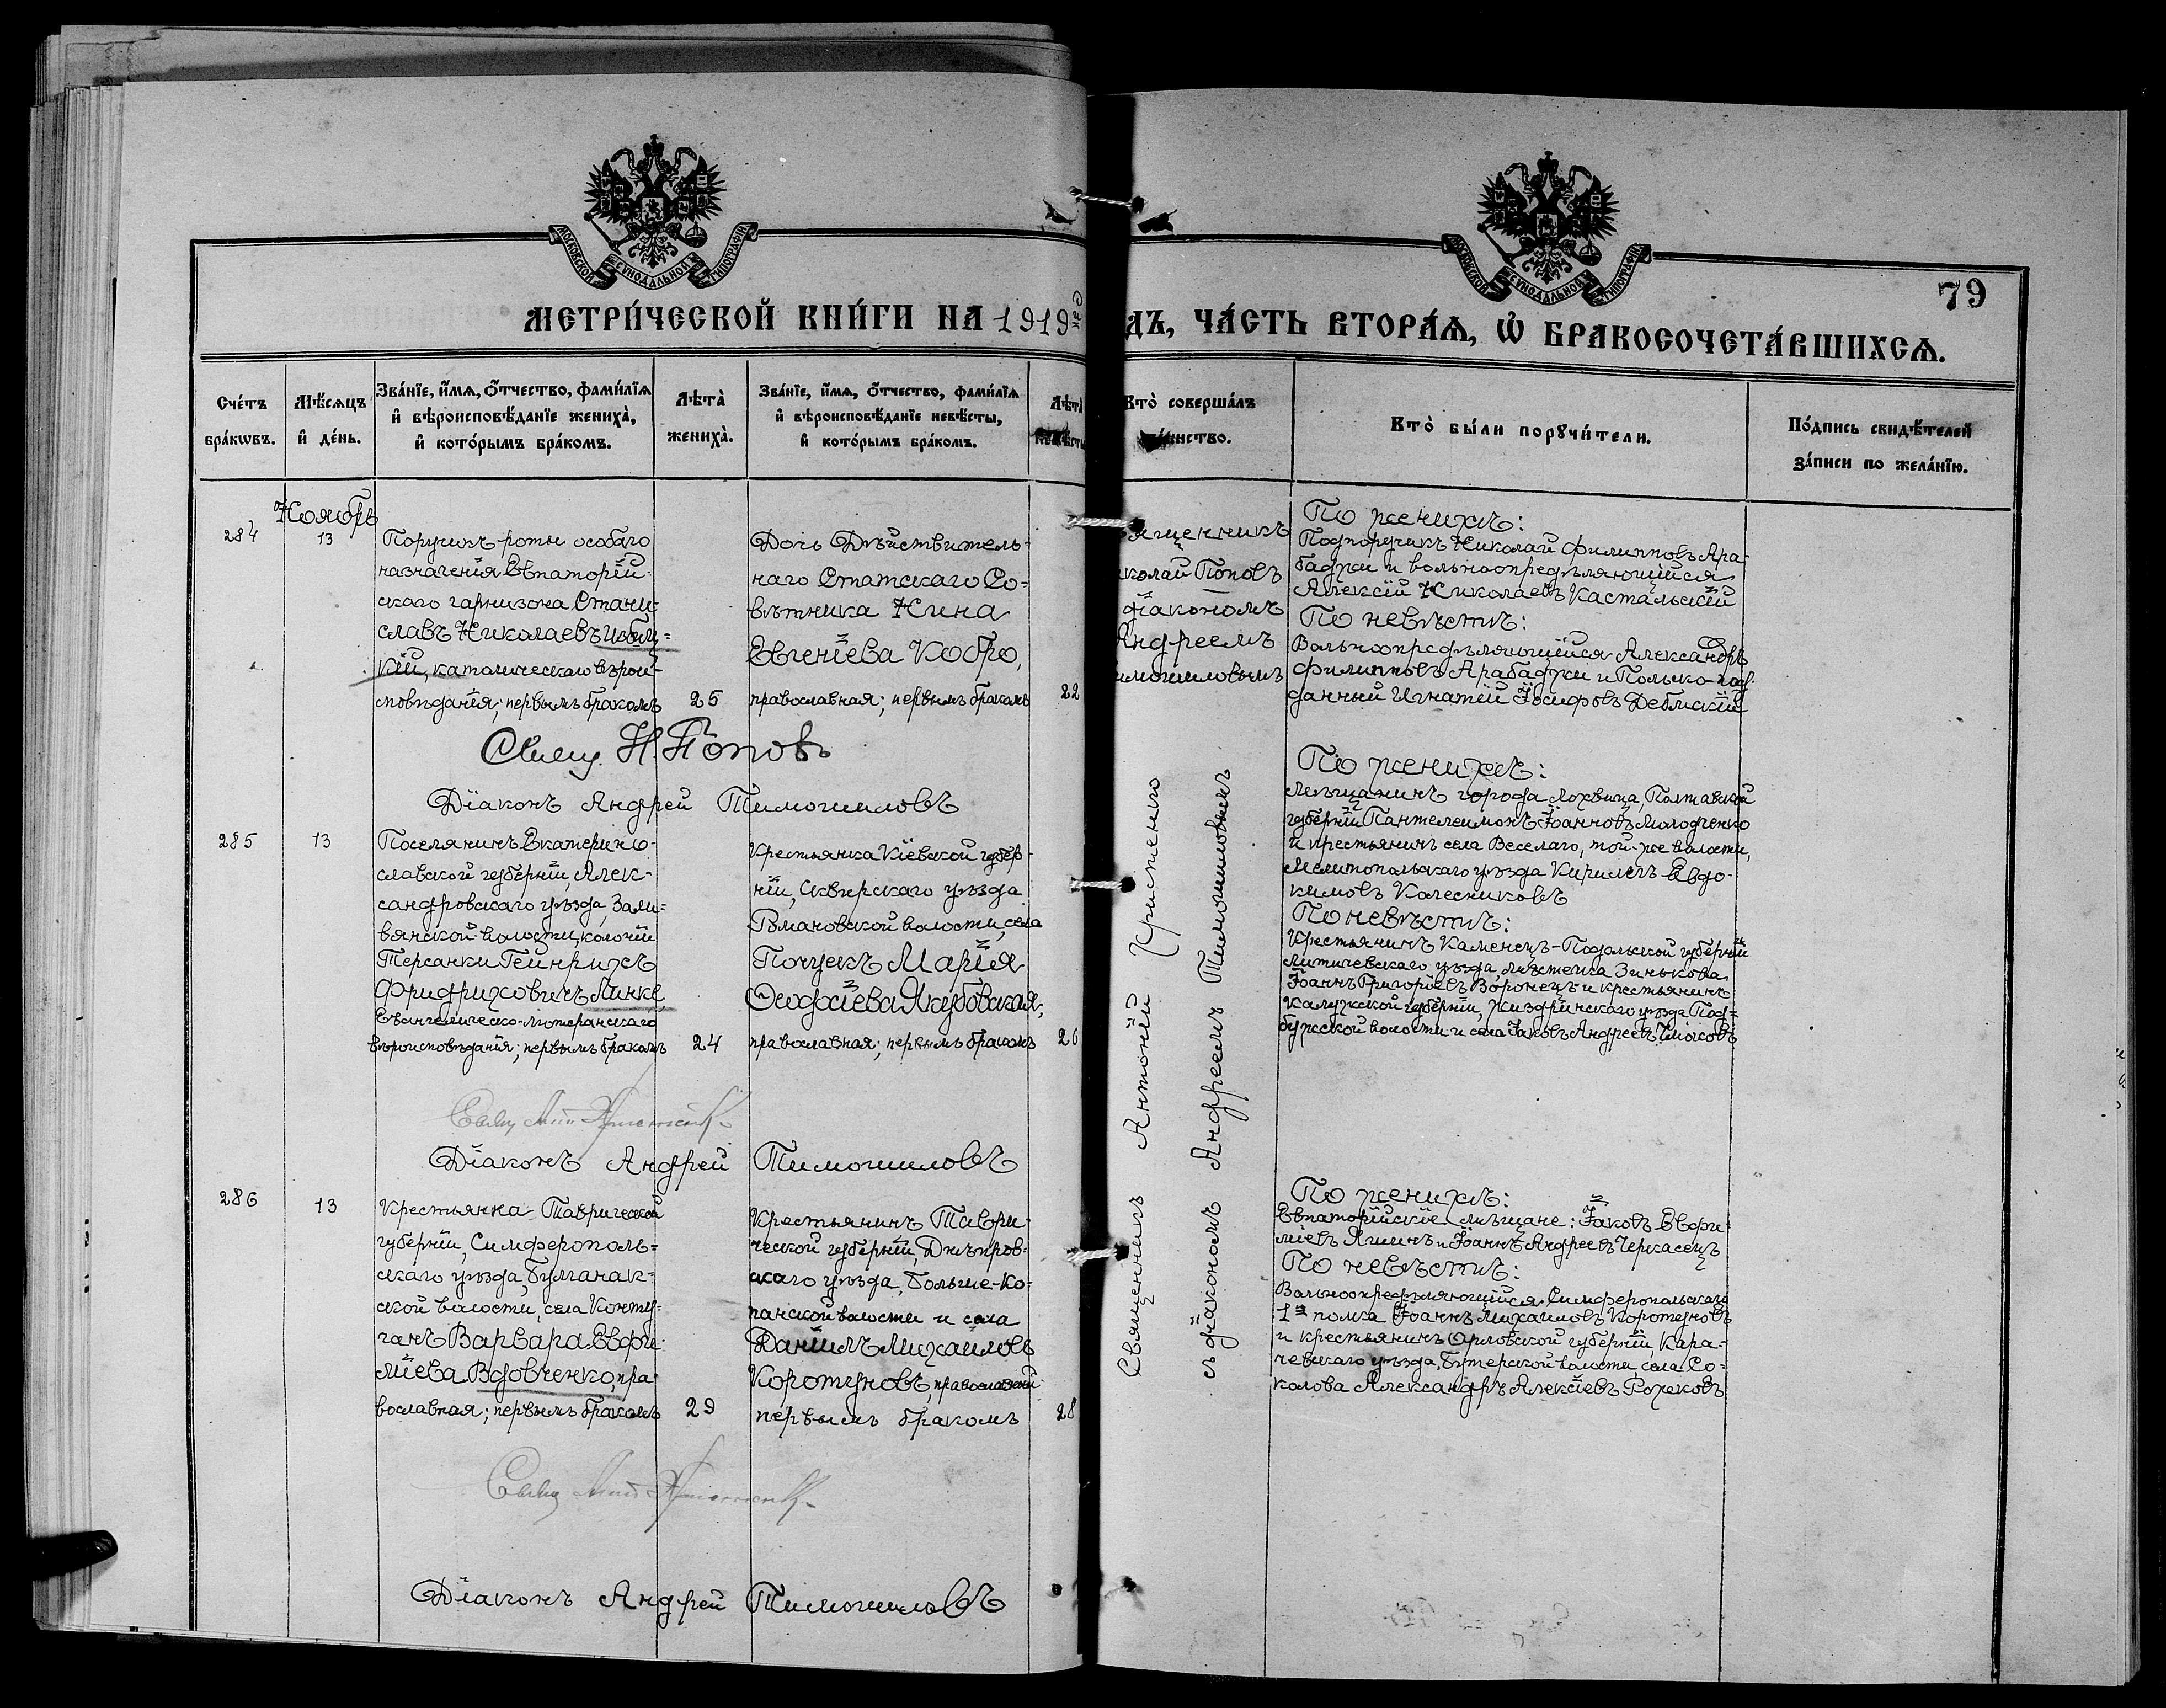 МОСКОВСКОЙ СѴНОДАЛЬНОЙ ТИПОГРАФІИ
МОСКОВСКОЙ СѴНОДАЛЬНОЙ ТИПОГРАФІИ
79
МЕТРИ́ЧЕСКОЙ КНИ́ГИ НА 1919
ДЪ, ЧА́СТЬ ВТОРА́Ѧ, Ѡ БРАКОСОЧЕТА́ВШИХСѦ.
Сче́тъ
бра́кѡвъ.
Мѣ́сѧцъ
и҆ де́нь.
Зва́нїе, и҆́мѧ, ѻ҆́тчество, фами́лїѧ
и҆ вѣроисповѣ́данїе жениха̀,
и҆ кото́рымъ бра́комъ.
Лѣта̀
жениха̀.
Зва́нїе, и҆́мѧ, ѻ҆́тчество, фами́лїѧ
и҆ вѣроисповѣ́данїе невѣ́сты,
и҆ кото́рымъ бра́комъ.
Лѣта̀
Кто̀ соверша́лъ
та́инство.
Кто̀ бы́ли порꙋчи́тели.
По́дпись свидѣ́телей
за́писи по жела́нїю.
Ноябрь
284
13
Поручикъ роты особаго
назначенія Евпаторій-
скаго гарнизона Стани-
славъ Николаевъ
кій, католическаго вѣрои-
сповѣданія; первымъ бракомъ
25
Дочь Дѣйствитель-
наго Статскаго Со-
вѣтника Нина
Евгеніева Кобро,
православная; первымъ бракомъ
22
ященникъ
колай Поповъ
діакономъ
Андреемъ
имошиловымъ
По женихѣ:
Подпоручикъ Николай Филипповъ Ара-
баджи и вольноопредѣляющійся
Алексій Николаевъ Кастальскій
По невѣстѣ:
Вольноопредѣляющійся Александръ
Филипповъ Арабаджи и Польско-под-
данный Игнатій Іосифовъ Деблискій
Свящ. Н. Поповъ
Діаконъ Андрей Тимошиловъ
285
13
Поселянинъ Екатерино-
славской губерніи, Алек-
сандровскаго уѣзда, Зали-
вянской волости, колоніи
Терсанки Гейнрихъ
Фридриховичъ Линке,
Евангелическо-лютеранскаго
вѣроисповѣданія; первымъ бракомъ
24
Крестьянка Кіевской губер-
ніи, Сквирскаго уѣзда
Романовской волости, села
Почуекъ Марія
Ѳеодосіева Якубовская,
православная; первымъ бракомъ
26
Священникъ Антоній Христенко
съ діакономъ Андреемъ Тимошиловымъ
По женихѣ:
Мѣщанинъ города Лохвица, Полтавской
губерніи Пантелеимонъ Іоанновъ Молодченко
и крестьянинъ села Веселаго, той-же волости,
Мелитопольскаго уѣзда Кириллъ Евдо-
кимовъ Колесниковъ
По невѣстѣ:
Крестьянинъ Каменецъ-Подольской губерніи
Литичевскаго уѣзда, мѣстечка Зинькова
Іоаннъ Григоріевъ Воронецъ и крестьянинъ
Калужской губерніи, Жиздринскаго уѣзда Под-
бужской волости и села Іаковъ Андреевъ
Діаконъ Андрей Тимошиловъ
286
13
Крестьянка Таврической
губерніи, Симферополь-
скаго уѣзда, Булганак-
ской волости, села Конту-
ганъ Варвара Евфи-
міева Вдовченко, пра-
вославная; первымъ бракомъ
29
Крестьянинъ Таври-
ческой губерніи, Днѣпров-
скаго уѣзда, Больше-Ко-
панской волости и села
Даніилъ Михаиловъ
Коротуновъ, православный
первымъ бракомъ
28
По женихѣ:
Евпаторійскіе мѣщане: Іаковъ Евфи-
міевъ Яшинъ и Іоаннъ Андреевъ Черкасецъ
По невѣстѣ:
Вольноопредѣляющійся Симферопольскаго
1го полка Іоаннъ Михаиловъ Коротуновъ
и крестьянинъ Орловской губерніи, Кара-
чевскаго уѣзда, Бутерской волости села Со-
колова Александръ Алексіевъ Рожековъ
Діаконъ Андрей Тимошиловъ